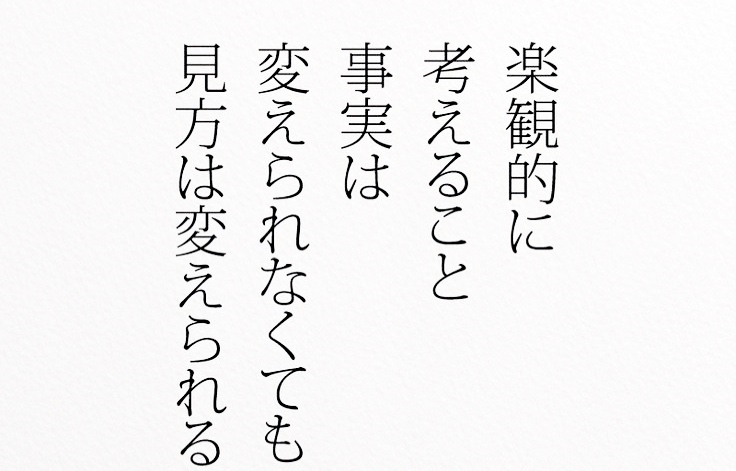 楽観的に
考えること
事実は
変えられなくても
見方は変えられる